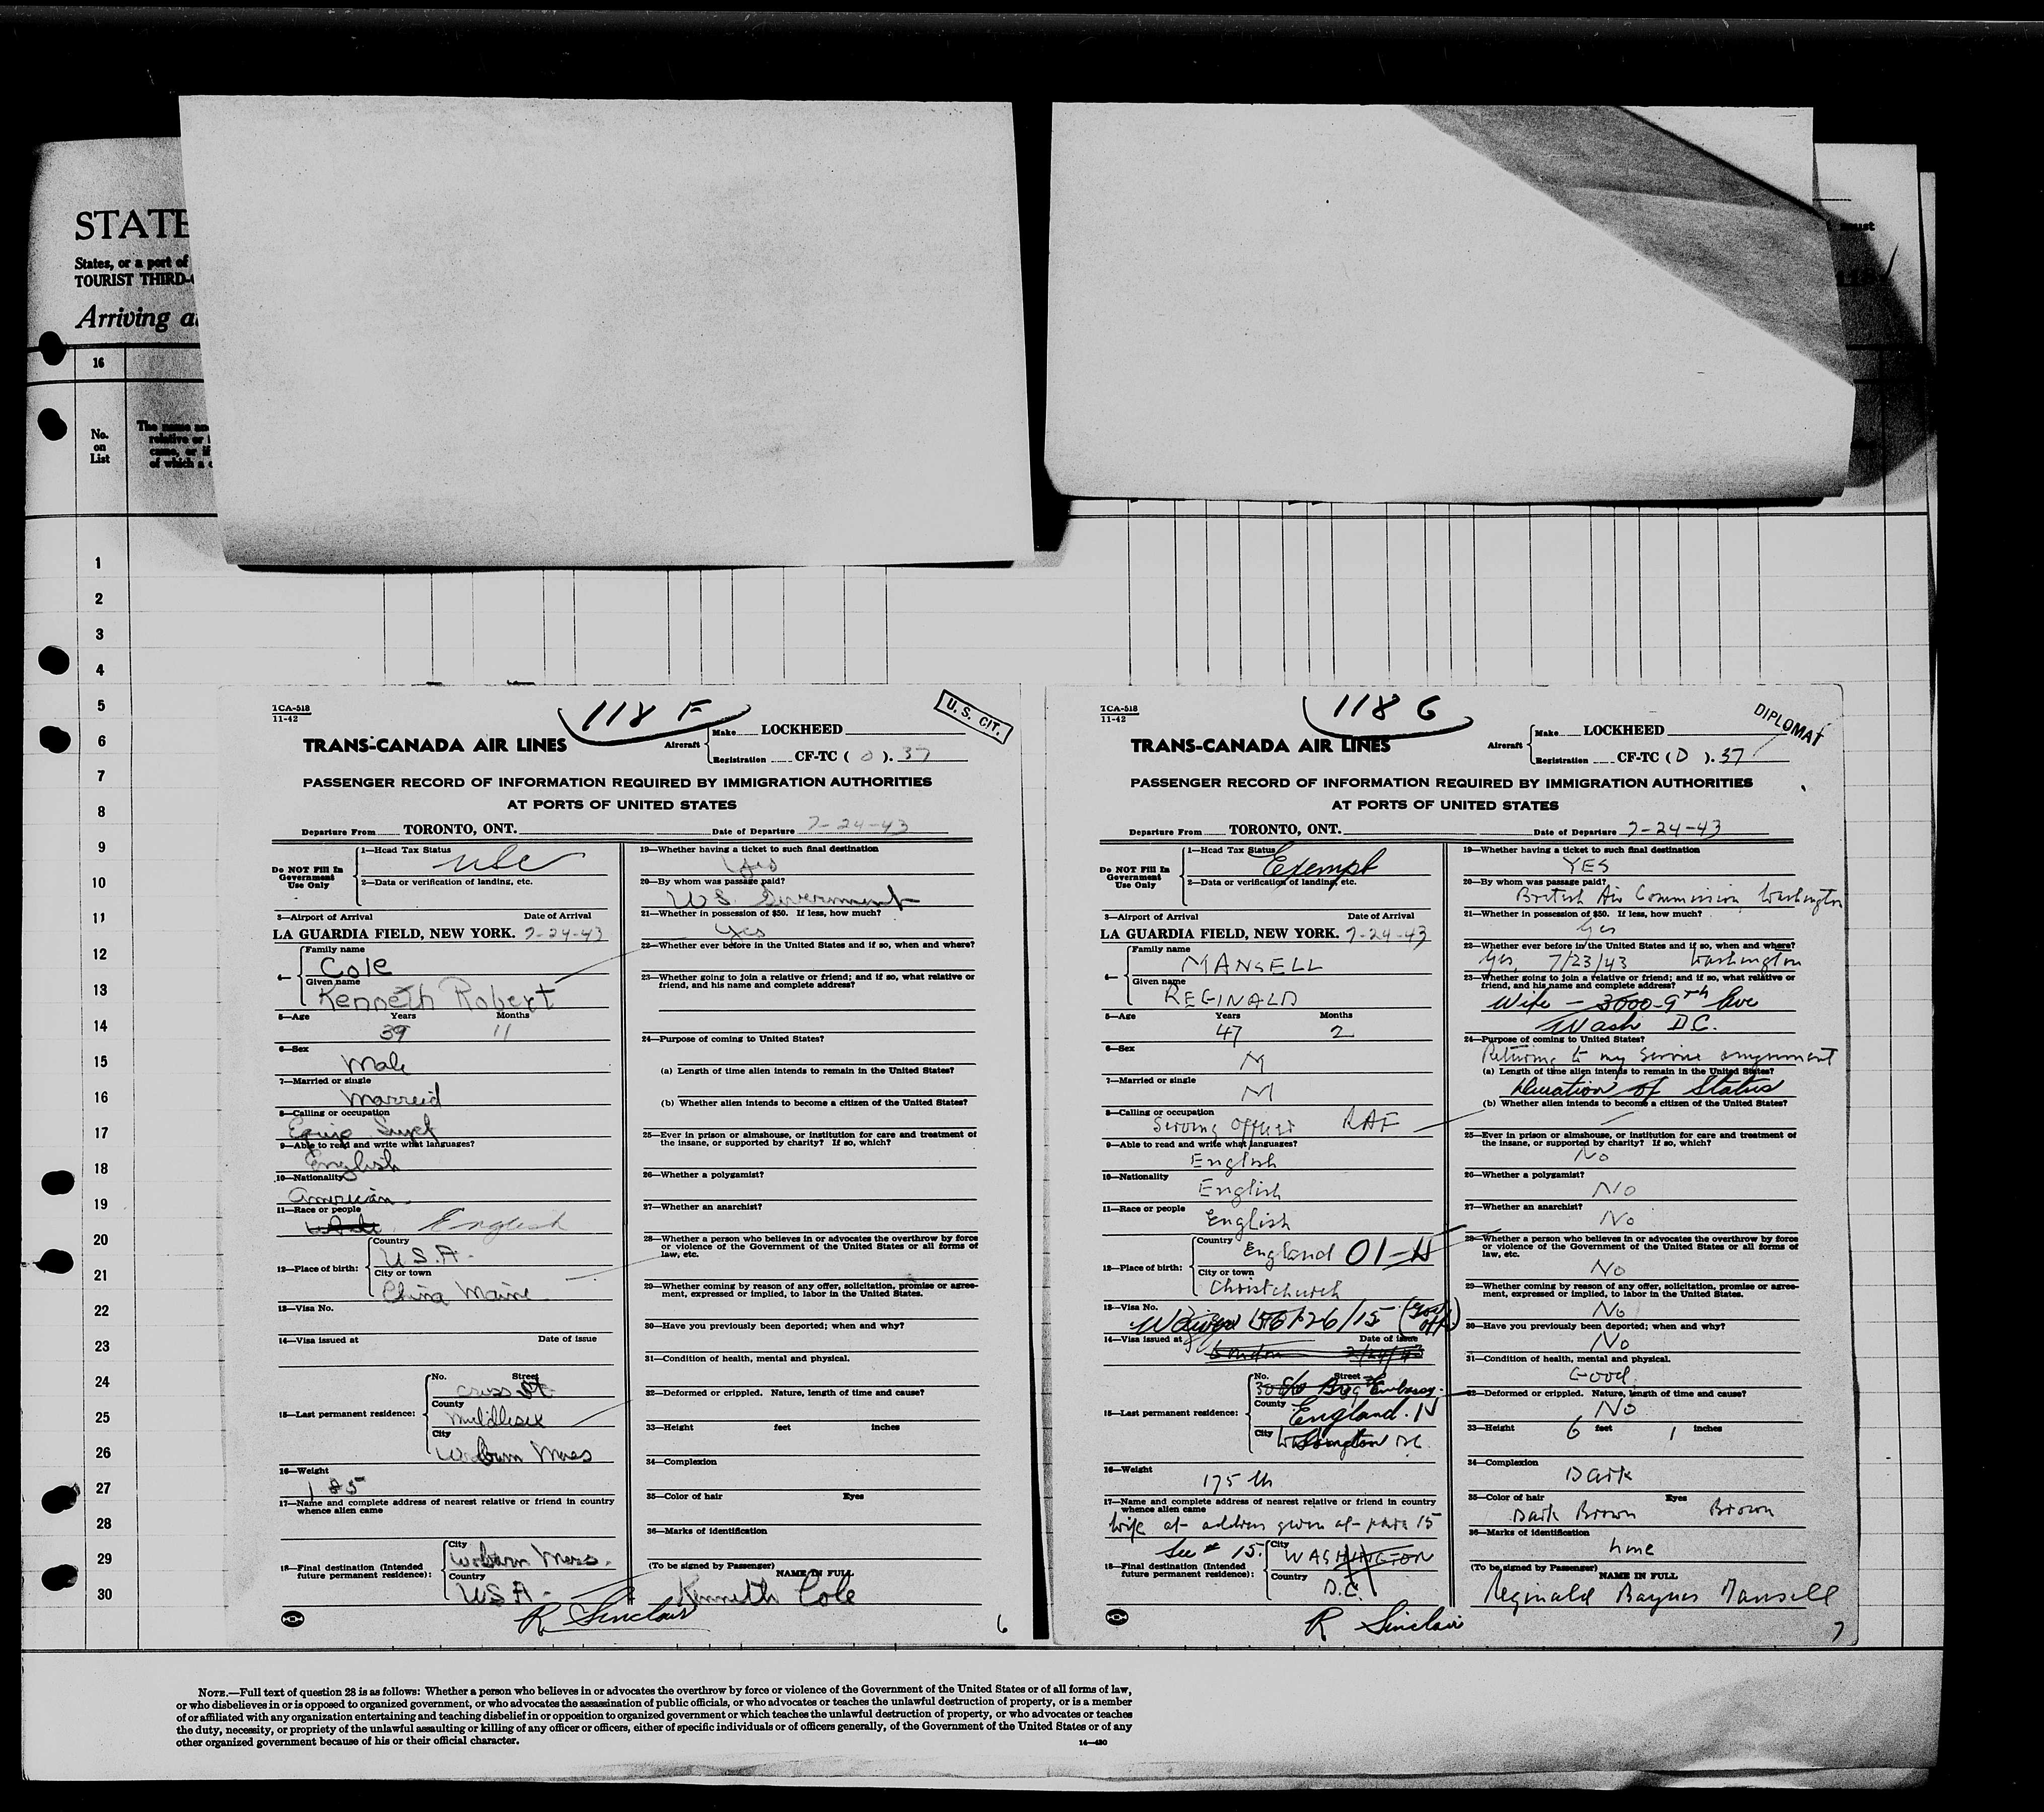 STATE
States, or a port of
TOURIST THIRD-
Arriving a
16
No.
on
List
The name an
relative or
came, or if
of which a c
1
2
3
4
5
6
7
8
9
10
11
12
13
14
15
16
17
18
19
20
21
22
23
24
25
26
27
28
29
30
TCA-518
11-42
118 F
U. S. CIT.
TRANS-CANADA AIR LINES
Aircraft
Make LOCKHEED
Registration CF-TC ( O ). 37
PASSENGER RECORD OF INFORMATION REQUIRED BY IMMIGRATION AUTHORITIES
AT PORTS OF UNITED STATES
Departure From TORONTO, ONT. Date of Departure 7-24-43
Do NOT Fill In
Government
Use Only
1—Head Tax Status
usc
2—Data or verification of landing, etc.
3—Airport of Arrival Date of Arrival
LA GUARDIA FIELD, NEW YORK. 7-24-43
4—
Family name
Cole
Given name
Kenneth Robert
5—Age Years Months
39 11
6—Sex
Male
7—Married or single
Marreid
8—Calling or occupation
Equip Supt
9—Able to read and write what languages?
English
10—Nationality
American
11—Race or people
English
12—Place of birth:
Country
U.S.A.
City or town
China Maine
13—Visa No.
14—Visa issued at Date of issue
15—Last permanent residence:
No. Street
Cross St
County
Middlesex
City
Woburn Mass
16—Weight
185
17—Name and complete address of nearest relative or friend in country
whence alien came
18—Final destination (Intended
future permanent residence):
City
Woburn Mass.
Country
USA
R Sinclair
19—Whether having a ticket to such final destination
Yes
20—By whom was passage paid?
U.S. Government
21—Whether in possession of $50. If less, how much?
Yes
22—Whether ever before in the United States and if so, when and where?
23—Whether going to join a relative or friend; and if so, what relative or
friend, and his name and complete address?
24—Purpose of coming to United States?
(a) Length of time alien intends to remain in the United States?
(b) Whether alien intends to become a citizen of the United States?
25—Ever in prison or almshouse, or institution for care and treatment of
the insane, or supported by charity? If so, which?
26—Whether a polygamist?
27—Whether an anarchist?
28—Whether a person who believes in or advocates the overthrow by force
or violence of the Government of the United States or all forms of
law, etc.
29—Whether coming by reason of any offer, solicitation, promise or agree-
ment, expressed or implied, to labor in the United States.
30—Have you previously been deported; when and why?
31—Condition of health, mental and physical.
32—Deformed or crippled. Nature, length of time and cause?
33—Height feet inches
34—Complexion
35—Color of hair Eyes
36—Marks of identification
(To be signed by Passenger) NAME IN FULL
Kenneth Cole
6
TCA-518
11-42
118 G
DIPLOMAT
TRANS-CANADA AIR LINES
Aircraft
Make LOCKHEED
Registration CF-TC ( D ). 37
PASSENGER RECORD OF INFORMATION REQUIRED BY IMMIGRATION AUTHORITIES
AT PORTS OF UNITED STATES
Departure From TORONTO, ONT. Date of Departure 7-24-43
Do NOT Fill In
Government
Use Only
1—Head Tax Status
Exempt
2—Data or verification of landing, etc.
3—Airport of Arrival Date of Arrival
LA GUARDIA FIELD, NEW YORK. 7-24-43
4—
Family name
MANSELL
Given name
REGINALD
5—Age Years Months
47 2
6—Sex
M
7—Married or single
M
8—Calling or occupation
Serving Officer RAF
9—Able to read and write what languages?
English
10—Nationality
English
11—Race or people
English
12—Place of birth:
Country
England 01-H
City or town
Christchurch
13—Visa No.
Waiver
14—Visa issued at Date of issue
London
15—Last permanent residence:
No. Street
Embassy
County
England.
City
Washington DC.
16—Weight
175 lb
17—Name and complete address of nearest relative or friend in country
whence alien came
Wife at address given at para 15
See # 15.
18—Final destination (Intended
future permanent residence):
City
WASHINGTON
Country
D.C.
R Sinclair
19—Whether having a ticket to such final destination
YES
20—By whom was passage paid?
British Air Commission Washington
21—Whether in possession of $50. If less, how much?
Yes
22—Whether ever before in the United States and if so, when and where?
Yes, 7/23/43 Washington
23—Whether going to join a relative or friend; and if so, what relative or
friend, and his name and complete address?
Wife — 3000-9th Ave
Wash D.C.
24—Purpose of coming to United States?
Returning to my service assignment
(a) Length of time alien intends to remain in the United States?
Duration of Status
(b) Whether alien intends to become a citizen of the United States?
25—Ever in prison or almshouse, or institution for care and treatment of
the insane, or supported by charity? If so, which?
No
26—Whether a polygamist?
No
27—Whether an anarchist?
No
28—Whether a person who believes in or advocates the overthrow by force
or violence of the Government of the United States or all forms of
law, etc.
No
29—Whether coming by reason of any offer, solicitation, promise or agree-
ment, expressed or implied, to labor in the United States.
No
30—Have you previously been deported; when and why?
No
31—Condition of health, mental and physical.
Good
32—Deformed or crippled. Nature, length of time and cause?
No
33—Height 6 feet 1 inches
34—Complexion
Dark
35—Color of hair Eyes
Dark Brown Brown
36—Marks of identification
none
(To be signed by Passenger) NAME IN FULL
Reginald Baynes Mansell
7
NOTE.—Full text of question 28 is as follows: Whether a person who believes in or advocates the overthrow by force or violence of the Government of the United States or of all forms of law,
or who disbelieves in or is opposed to organized government, or who advocates the assassination of public officials, or who advocates or teaches the unlawful destruction of property, or is a member
of or affiliated with any organization entertaining and teaching disbelief in or opposition to organized government or which teaches the unlawful destruction of property, or who advocates or teaches
the duty, necessity, or propriety of the unlawful assaulting or killing of any officer or officers, either of specific individuals or of officers generally, of the Government of the United States or of any
other organized government because of his or their official character.
14—430